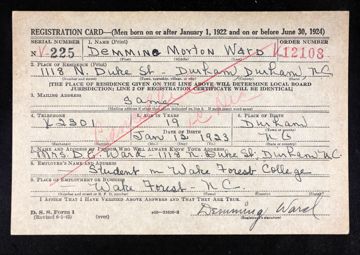 REGISTRATION CARD—(Men born on or after January 1, 1922 and on or before June 30, 1924)
SERIAL NUMBER 1. NAME (Print) ORDER NUMBER
N 225 Demming Morton Ward 12108
(First) (Middle) (Last)
2. PLACE OF RESIDENCE (Print)
1118 N. Duke St. Durham Durham N.C.
[THE PLACE OF RESIDENCE GIVEN ON THE LINE ABOVE WILL DETERMINE LOCAL BOARD
JURISDICTION; LINE 2 OF REGISTRATION CERTIFICATE WILL BE IDENTICAL]
3. MAILING ADDRESS
Same
4. TELEPHONE 5. AGE IN YEARS 6. PLACE OF BIRTH
L 3301 19 Durham
DATE OF BIRTH
Jan 13 1923 N.C.
7. NAME AND ADDRESS OF PERSON WHO WILL ALWAYS KNOW YOUR ADDRESS
Mrs D.C. Ward - 1118 N. Duke St, Durham NC
8. EMPLOYER'S NAME AND ADDRESS
Student in Wake Forest College
9. PLACE OF EMPLOYMENT OR BUSINESS
Wake Forest - N.C.
I AFFIRM THAT I HAVE VERIFIED ABOVE ANSWERS AND THAT THEY ARE TRUE.
D. S. S. Form 1
Demming Ward